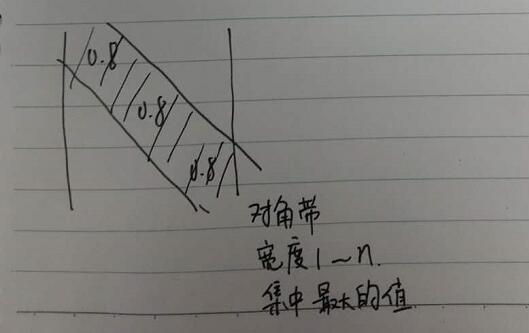 0.8
0.8
0.8
对角带
宽度1~n.
集中最大的值